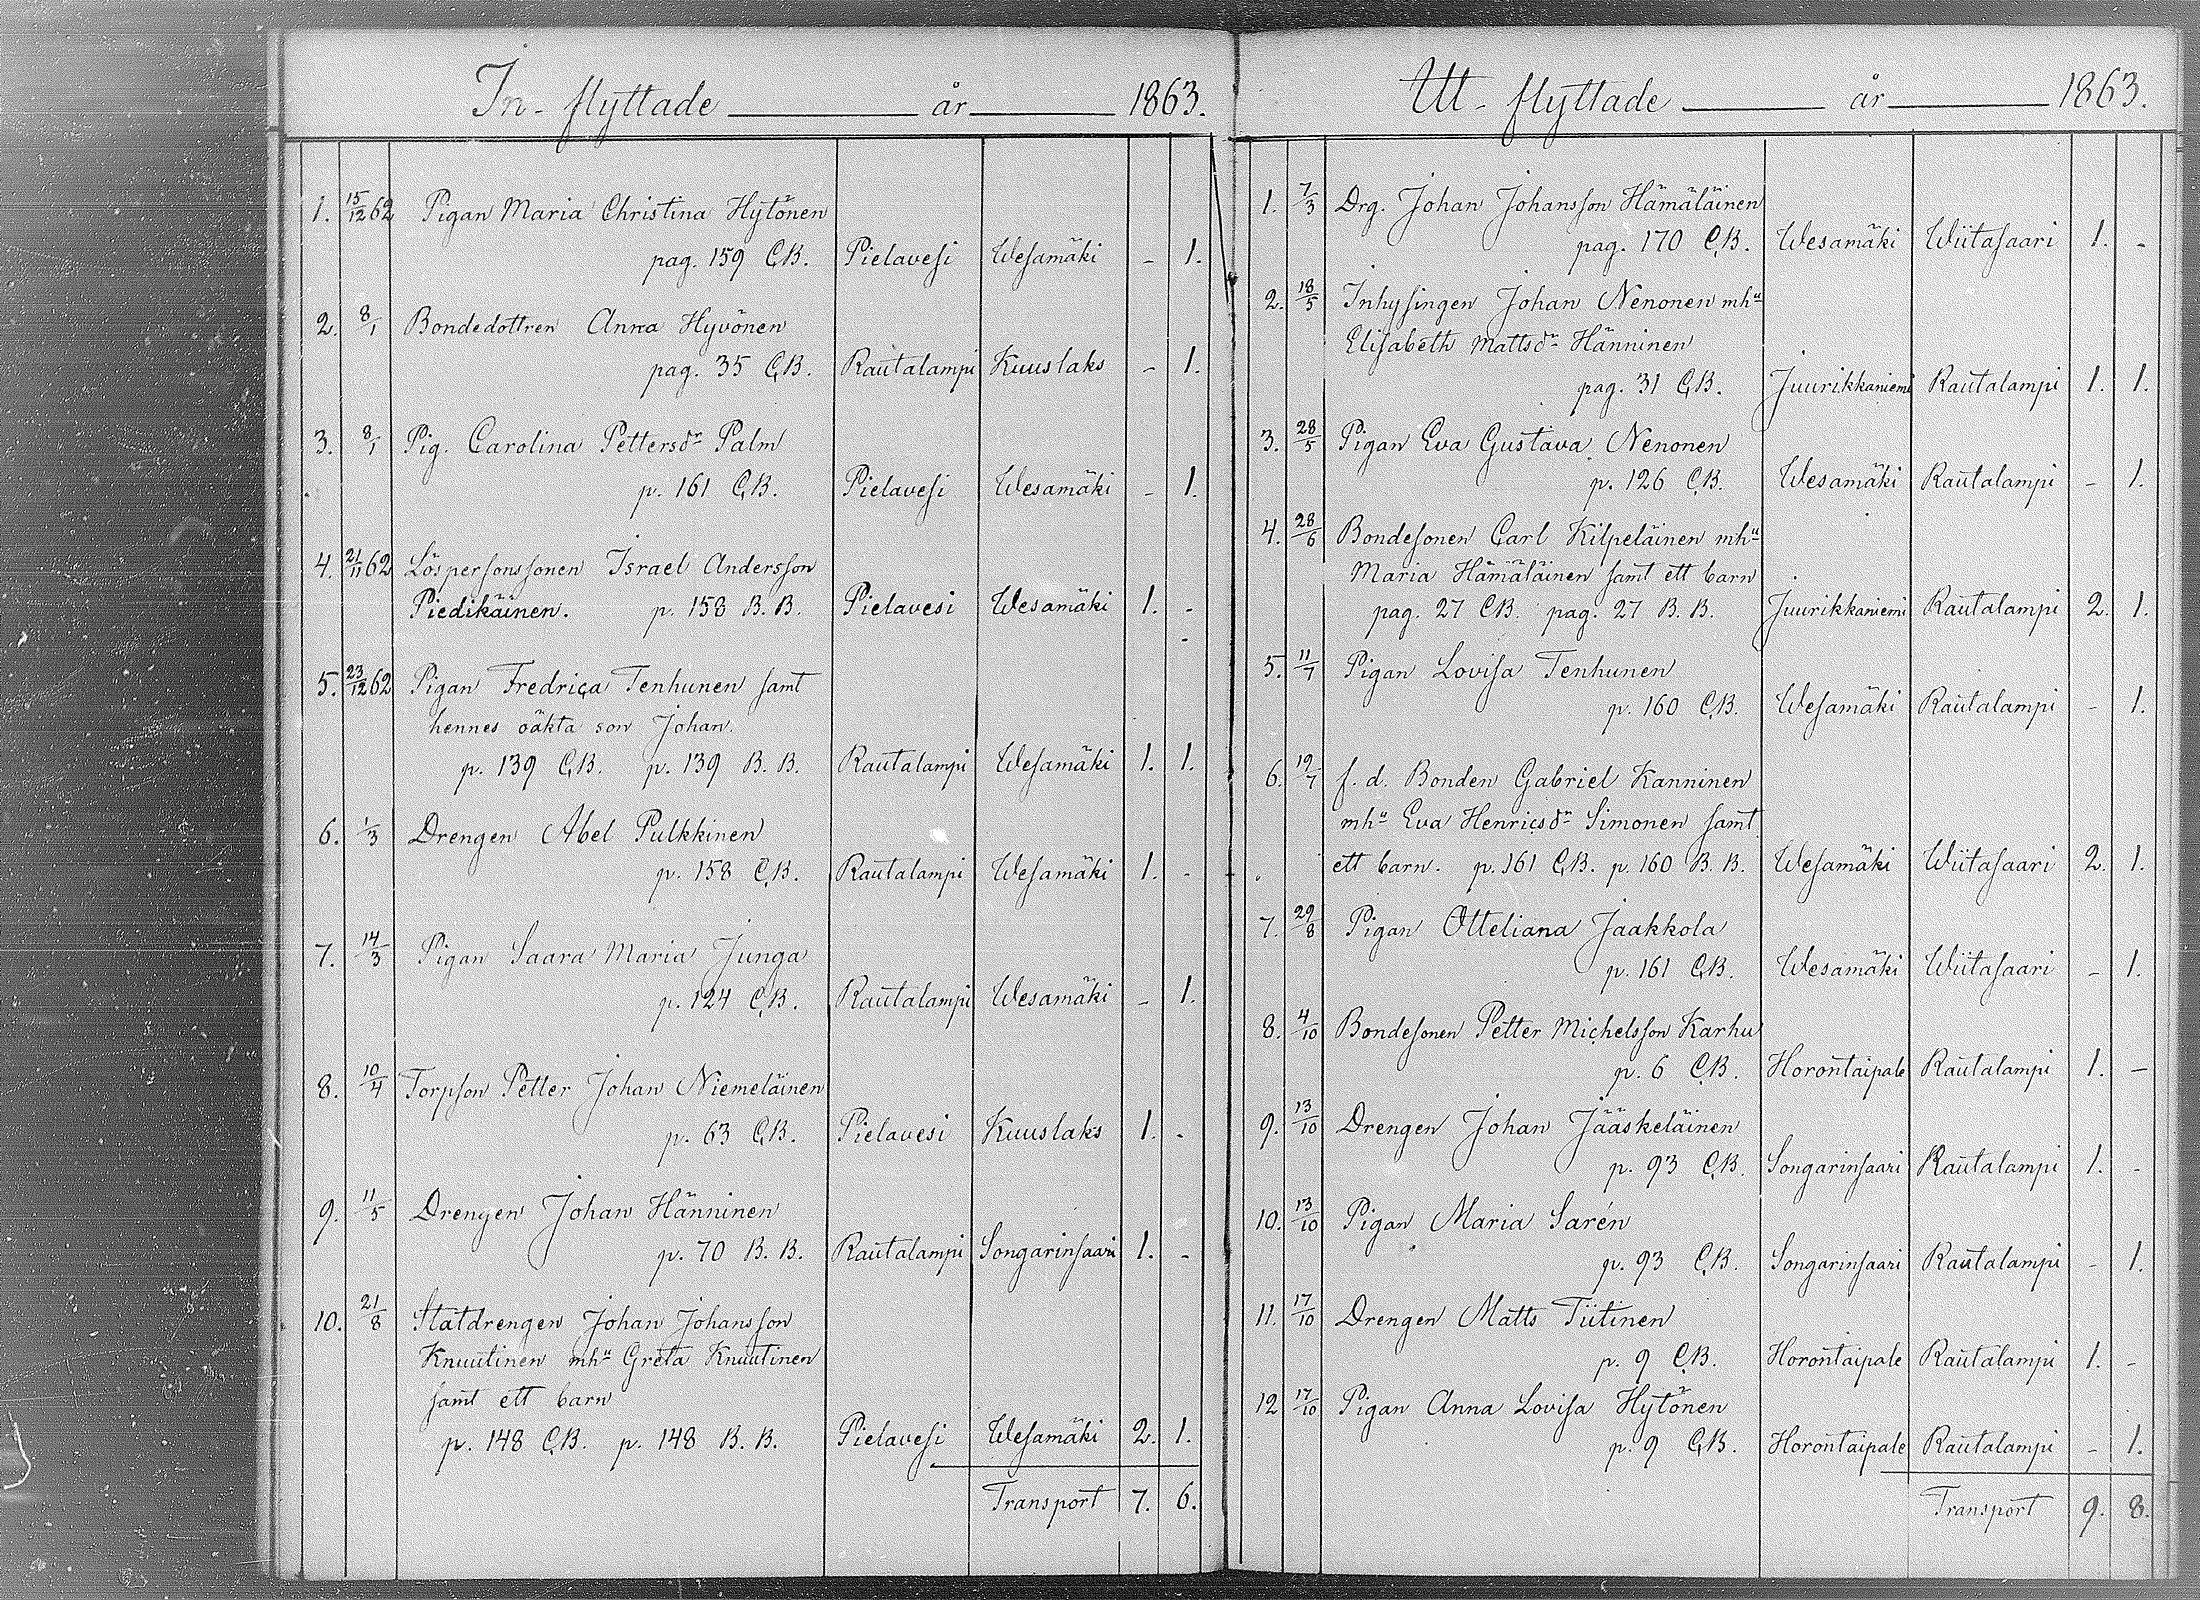 In- flyttade år 1863.
1. 15/12 62 Pigan Maria Christina Hytönen
pag. 159 C.B. Pielavesi Wesamäki - 1.
2. 8/1 Bondedottren Anna Hyvönen
pag. 35 C.B. Rautalampi Kuuslaks - 1.
3. 8/1 Pig. Carolina Pettersdr Palm
p. 161 C.B. Pielavesi Wesamäki - 1.
4. 21/11 62 Löspersonssonen Israel Andersson
Piedikäinen. p. 158 B.B. Pielavesi Wesamäki 1. -
5. 23/12 62 Pigan Fredrica Tenhunen samt
hennes oäkta son Johan.
p. 139 C.B. p. 139 B.B. Rautalampi Wesamäki 1. 1.
6. 1/3 Drengen Abel Pulkkinen
p. 158 C.B. Rautalampi Wesamäki 1. -
7. 14/3 Pigan Saara Maria Junga
p. 124 C.B. Rautalampi Wesamäki - 1.
8. 10/4 Torpson Petter Johan Niemeläinen
p. 63 C.B. Pielavesi Kuuslaks 1. -
9. 11/5 Drengen Johan Hänninen
p. 70 B.B. Rautalampi Songarinsaari 1. -
10. 21/8 Statdrengen Johan Johansson
Knuutinen mhu Greta Knuutinen
samt ett barn
p. 148 C.B. p. 148 B.B. Pielavesi Wesamäki 2. 1.
Transport 7. 6.
Ut- flyttade år 1863.
1. 7/3 Drg. Johan Johansson Hämäläinen
pag. 170 C.B. Wesamäki Wiitasaari 1. -
2. 18/5 Inhysingen Johan Nenonen mhu
Elisabeth Mattsdr Hänninen
pag. 31 C.B. Juurikkaniemi Rautalampi 1. 1.
3. 28/5 Pigan Eva Gustava Nenonen
p. 126 C.B. Wesamäki Rautalampi - 1.
4. 28/6 Bondesonen Carl Kilpeläinen mhu
Maria Hämäläinen samt ett barn
pag. 27 C.B. pag. 27 B.B. Juurikkaniemi Rautalampi 2. 1.
5. 11/7 Pigan Lovisa Tenhunen
p. 160 C.B. Wesamäki Rautalampi - 1.
6. 19/7 f.d. Bonden Gabriel Kanninen
mhu Eva Henricsdr Simonen samt
ett barn. p. 161 C.B. p. 160 B.B. Wesamäki Wiitasaari 2. 1.
7. 29/8 Pigan Otteliana Jaakkola
p. 161 C.B. Wesamäki Wiitasaari - 1.
8. 4/10 Bondesonen Petter Michelsson Karhu
p. 6 C.B. Horontaipale Rautalampi 1. -
9. 13/10 Drengen Johan Jääskeläinen
p. 93 C.B. Songarinsaari Rautalampi 1. -
10. 13/10 Pigan Maria Sarén
p. 93 C.B. Songarinsaari Rautalampi - 1.
11. 17/10 Drengen Matts Tiitinen
p. 9 C.B. Horontaipale Rautalampi 1. -
12 17/10 Pigan Anna Lovisa Hytönen
p. 9 C.B. Horontaipale Rautalampi - 1.
Transport 9. 8.